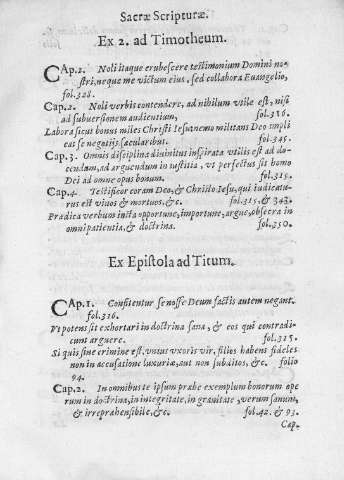 Sacræ Scripturæ.
Ex 2. ad Timotheum.
CAp.1. Noli itaque erubescere testimonium Domini no-
stri, neque me victum eius, sed collabora Euangelio,
fol.328.
Cap.2. Noli verbis contendere, ad nihilum vtile est, nisi
ad subuersionem audientium, fol.316.
Labora sicut bonus miles Christi Iesu nemo militans Deo impli
cat se negotijs sæcularibus. fol.345.
Cap.3. Omnis disciplina diuinitus inspirata vtilis est ad do-
cendum, ad arguendum in iustitia, vt perfectus sit homo
Dei ad omne opus bonum. fol.315.
Cap.4. Testificor coram Deo, & Christo Iesu, qui iudicatu-
rus est viuos & mortuos, &c. fol.315. & 343.
Prædica verbum insta opportune, importune, argue, obsecra in
omni patientia, & doctrina. fol.350.
Ex Epistola ad Titum.
CAp.1. Confitentur se nosse Deum factis autem negant.
fol.326.
Vt potens sit exhortari in doctrina sana, & eos qui contradi-
cunt arguere. fol.315.
Si quis sine crimine est, vnius vxoris vir, filios habens fideles
non in accusatione luxuriæ, aut non subditos, &c. folio
94.
Cap.2. In omnibus te ipsum præbe exemplum bonorum ope
rum in doctrina, in integritate, in grauitate, verum sanum,
& irreprahensibile, &c. fol.42. & 93.
Cap.